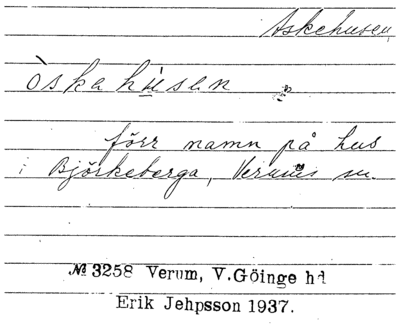 Askehusen
òskahusen
förr namn på hus
i Björkeberga, Verums sn.
№ 3258 Verum, V.Göinge hd
Erik Jehpsson 1937.